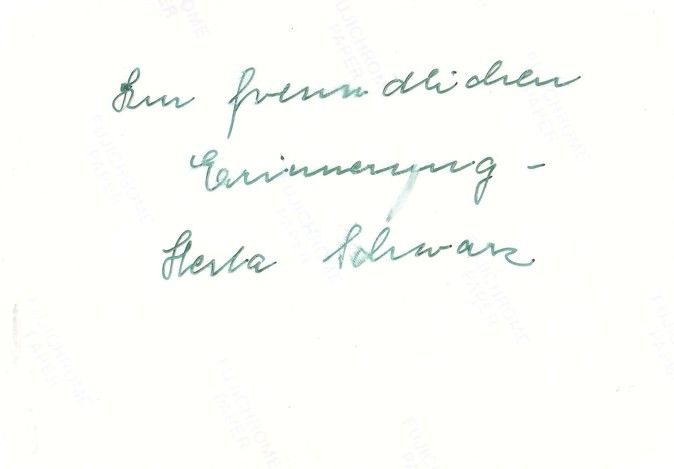 Zur freundlichen
Erinnerung -
Herta Schwarz
FUJICHROME
PAPER
FUJICHROME
PAPER
FUJICHROME
PAPER
FUJICHROME
PAPER
FUJICHROME
PAPER
FUJICHROME
PAPER
FUJICHROME
PAPER